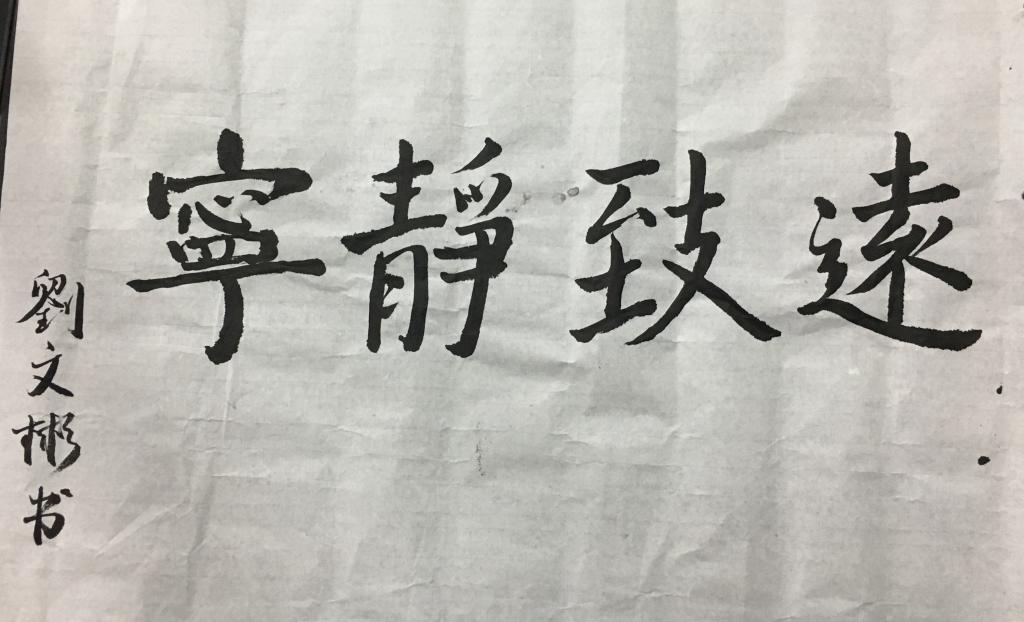 寧靜致遠
劉文彬书